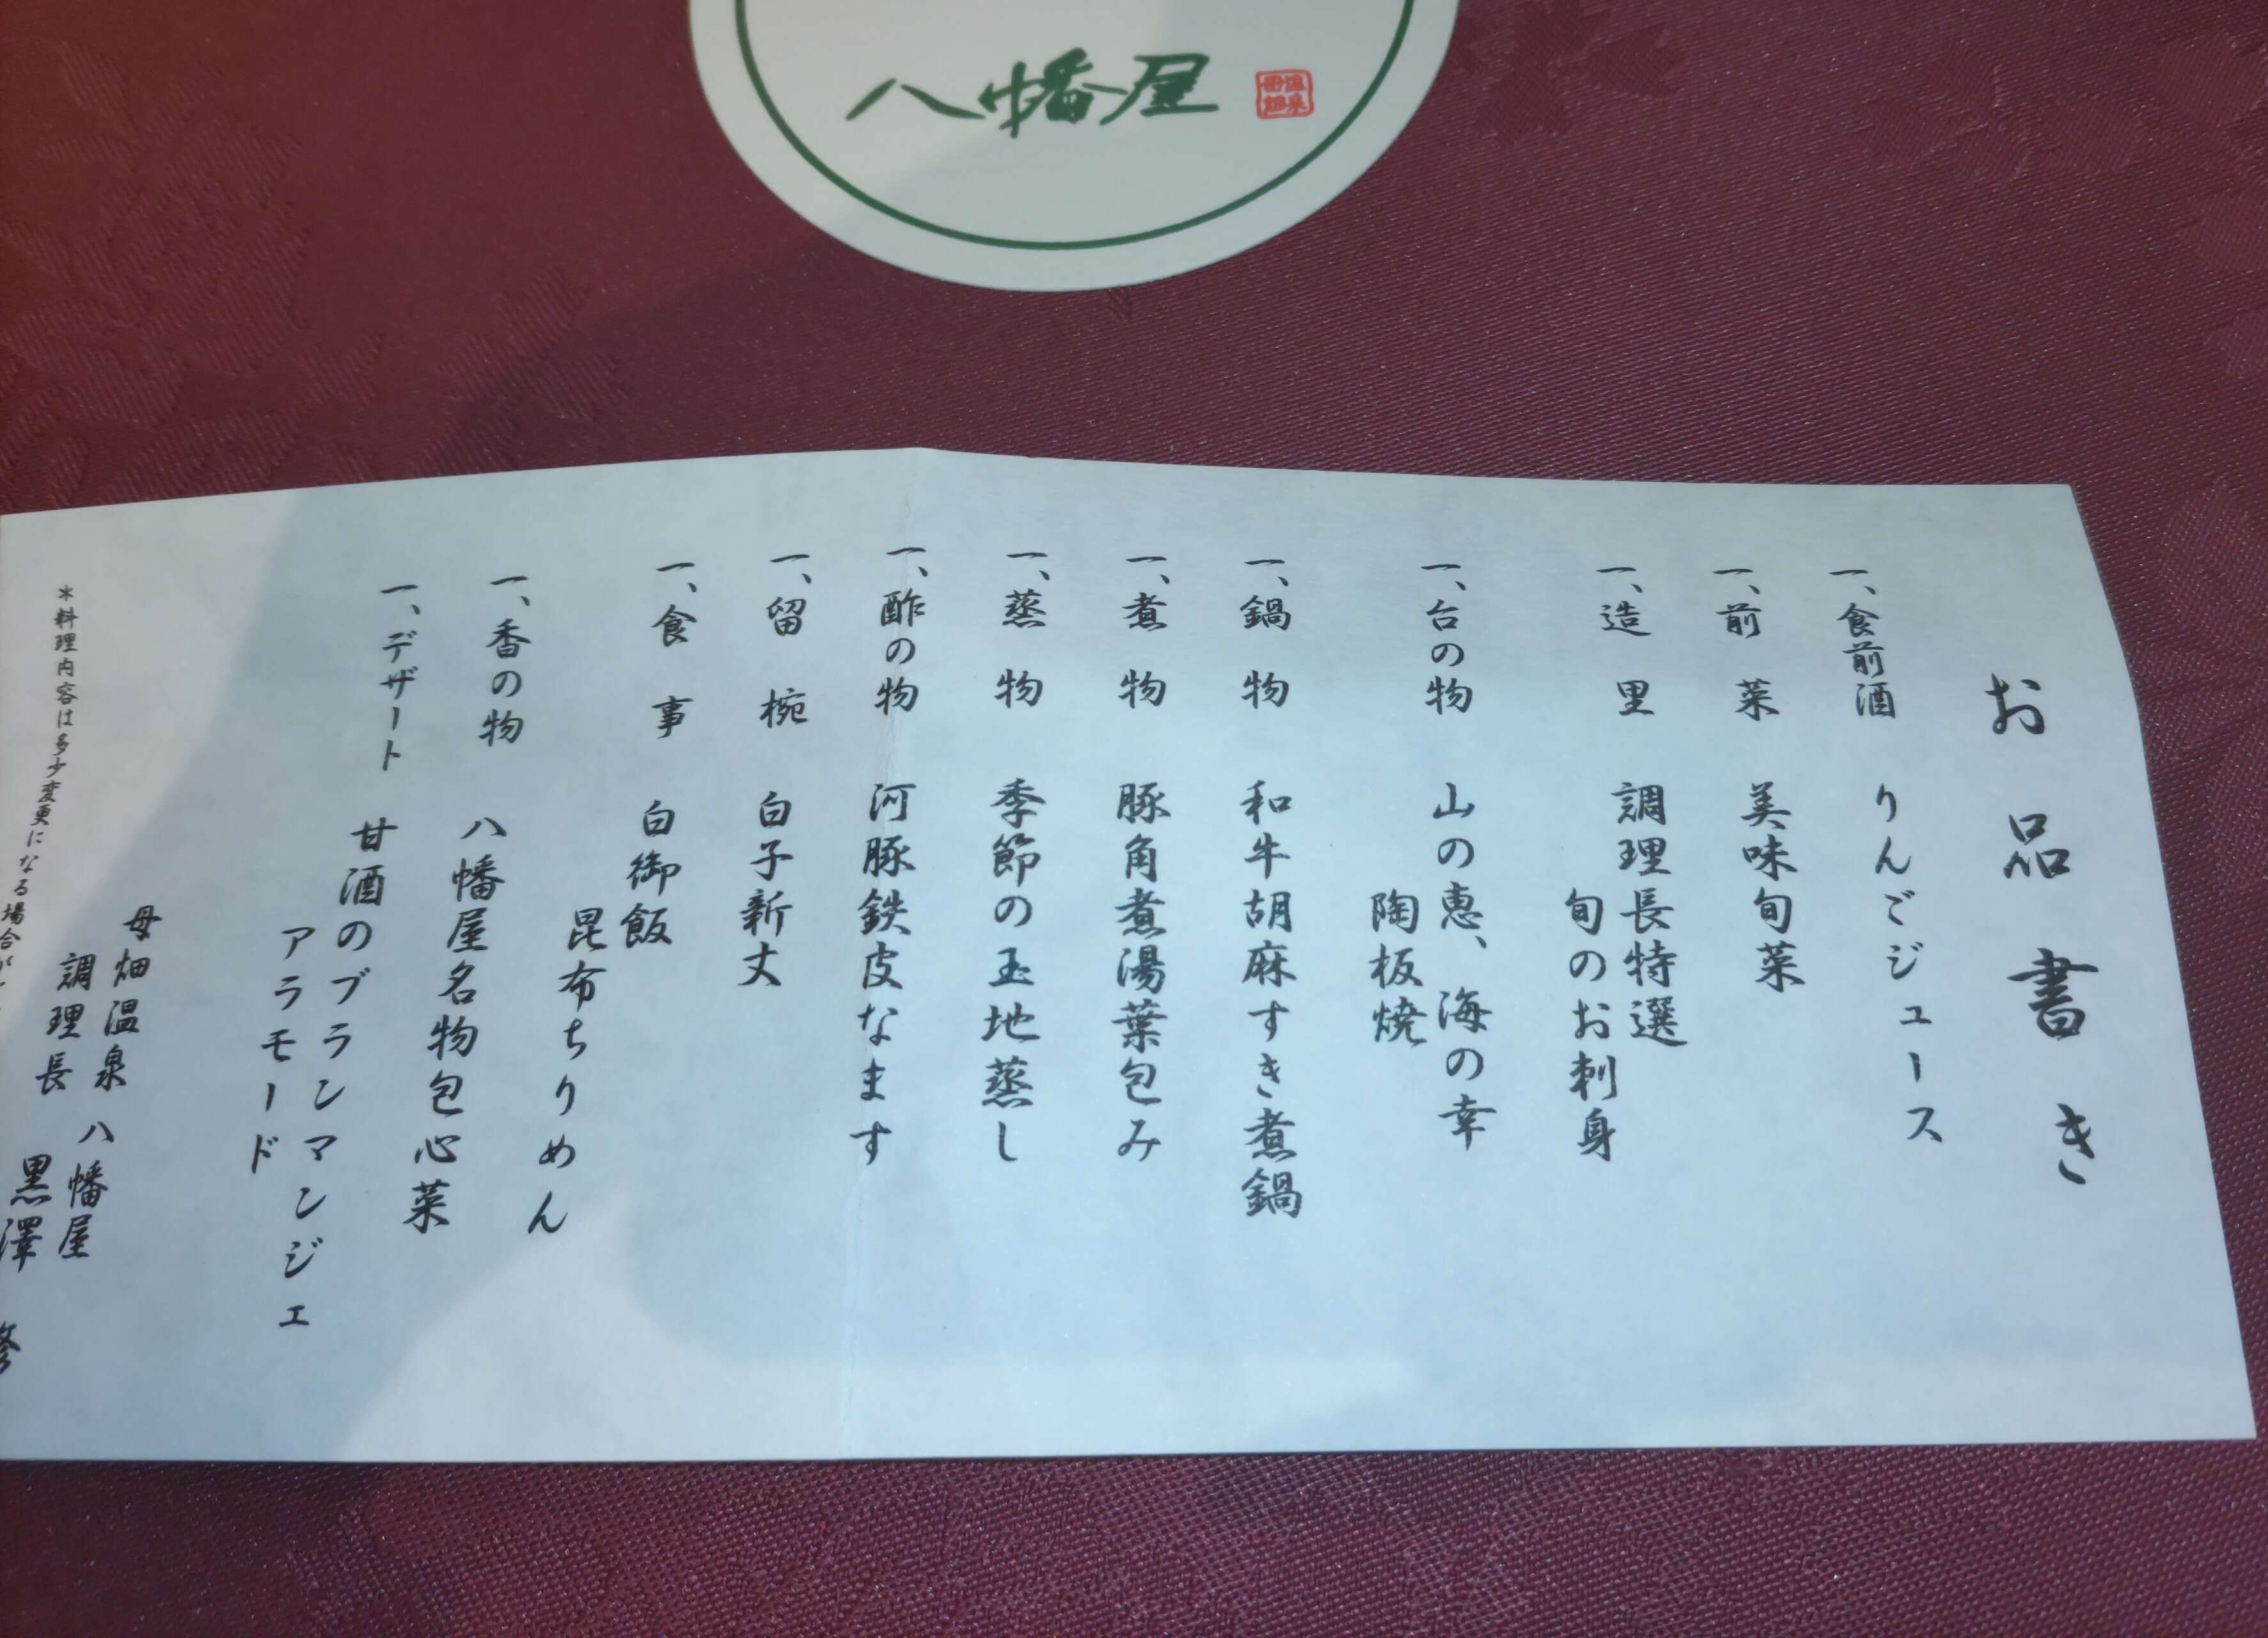 八幡屋
お品書き
一、食前酒 りんごジュース
一、前菜 美味旬菜
一、造里 調理長特選
旬のお刺身
一、台の物 山の恵、海の幸
陶板焼
一、鍋物 和牛胡麻すき煮鍋
一、煮物 豚角煮湯葉包み
一、蒸物 季節の玉地蒸し
一、酢の物 河豚鉄皮なます
一、留椀 白子新丈
一、食事 白御飯
昆布ちりめん
一、香の物 八幡屋名物包心菜
一、デザート 甘酒のブランマンジェ
アラモード
母畑温泉 八幡屋
調理長 黒澤
*料理内容は多少変更になる場合が